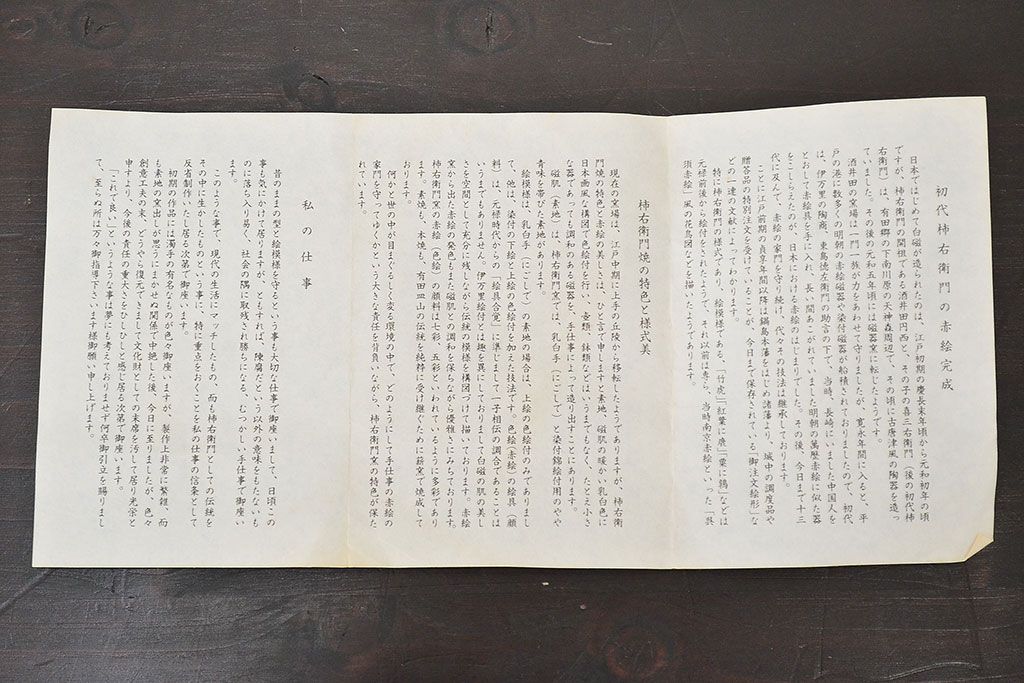 初代柿右衛門の赤絵完成
日本ではじめて白磁が造られたのは、江戸初期の慶長末年頃から元和初年の頃
ですが、柿右衛門の開祖である酒井田円西と、その子の喜三右衛門(後の初代柿
右衛門)は、有田郷の下南川原の天神森周辺で、その頃に古唐津風の陶器を造っ
ていました。その後の元和五年頃には磁器窯に転じたようです。
酒井田の窯場は一門一族が力をあわせて守りましたが、寛永年間に入ると、平
戸の港に数多くの明朝の赤絵磁器や染付磁器が船積されておりましたので、初代
は、伊万里の陶商、東島徳左衛門の助言の下で、当時、長崎にいました中国人を
とおして赤絵具を手に入れ、長い間あこがれていました明朝の萬歴赤絵に似た器
をこしらえたのが、日本における赤絵のはじまりでした。その後、今日まで十三
代に及んで、赤絵の家門を守り続け、代々その技法は継承しております。
ことに江戸前期の貞享年間以降は鍋島本藩をはじめ諸藩より、城中の調度品や
贈答品の特別注文を受けていることが、今日まで保存されている「御注文絵形」な
どの一連の文献によってわかります。
特に柿右衛門の様式であり、絵模様である、「竹虎」「紅葉に鹿」「粟に鶉」などは
元禄前後から絵付をされたようで、それ以前は専ら、当時南京赤絵といった「呉
須赤絵」風の花鳥図などを描いたようであります。
柿右衛門焼の特色と様式美
現在の窯場は、江戸中期に上手の丘陵から移転したようでありますが、柿右衛
門焼の特色と赤絵の美しさは、ひと言で申しますと素地、磁肌の暖かい乳白色に
日本画風な構図で色絵付を行い、壺類、鉢類などはいうまでもなく、たとえ小さ
な器であっても調和のある磁器を、手仕事によって造り出すことにあります。
磁肌(素地)は、柿右衛門窯では、乳白手(にごしで)と染付錦絵付用のやや
青味を帯びた素地があります。
絵模様は、乳白手(にごしで)の素地の場合は、上絵の色絵付のみでありまし
て、他は、染付の下絵と上絵の色絵付を加えた技法です。色絵(赤絵)の絵具(顔
料)は、元禄時代からの「絵具合覚」に準じまして一子相伝の調合であることは
いうまでもありません。伊万里絵付とは趣を異にしておりまして白磁の肌の美し
さを空間として充分に残しながら伝統の模様を構図づけて描いております。赤絵
窯から出た赤絵の発色もまた磁肌との調和を保ちながら優雅さにみちております。
柿右衛門窯の赤絵(色絵)の顔料は七彩、五彩といわれているように多彩であり
ます。素焼も、本焼も、有田皿山の伝統を純粋に受け継ぐために薪窯で焼成して
おります。
何かと世の中が目まぐるしく変る環境の中で、どのようにして手仕事の赤絵の
家門を守ってゆくかという大きな責任を背負いながら、柿右衛門窯の特色が保た
れています。
私の仕事
昔のままの型と絵模様を守るという事も大切な仕事で御座いまして、日頃この
事も気にかけて居りますが、ともすれば、陳腐だという以外の意味をもたないも
のに落ち入り易く、社会の隅に取残され勝ちになる、むつかしい手仕事で御座い
ます。
このような事で、現代の生活にマッチしたもの、而も柿右衛門としての伝統を
その中に生かしたものという事に、特に重点をおくことを私の仕事の信条として
反省制作いたして居る次第で御座います。
初期の作品には濁手の有名なものが色々御座いますが、製作上非常に繁雑、而
も素地の窯出しが思うにまかせぬ関係で中絶した後、今日に至りましたが、色々
創意工夫の末、どうやら復元できまして文化財としての末席を汚して居り光栄と
申すより、今後の責任の重大さをひしひしと感じ居る次第で御座います。
「これで良い」というような事は夢にも考えておりませず何卒御引立を賜りまし
て、至らぬ所は万々御指導下さいます様御願い申し上げます。